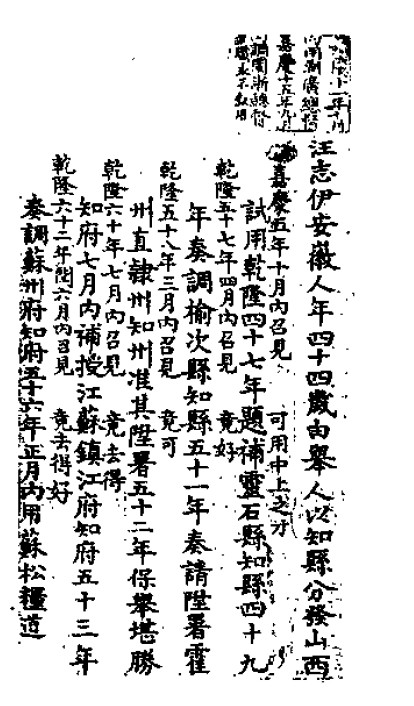 湖廣總督
嘉慶十五年九月
調閩浙總督
革職永不敘用
汪志伊安徽人年四十四歲由舉人以知縣分發山西
嘉慶五年十月內召見 可用中上之才
試用乾隆四十七年題補靈石縣知縣四十九
乾隆五十七年四月內召見 竟好
年奏調榆次縣知縣五十一年奏請陞署霍
乾隆五十八年三月內召見 竟可
州直隸州知州准其陞署五十二年保舉堪勝
乾隆六十年七月內召見 竟去得
知府七月內補授江蘇鎮江府知府五十三年
乾隆六十二年閏六月內召見 竟去得好
奏調蘇州府知府五十六年正月內用蘇松糧道